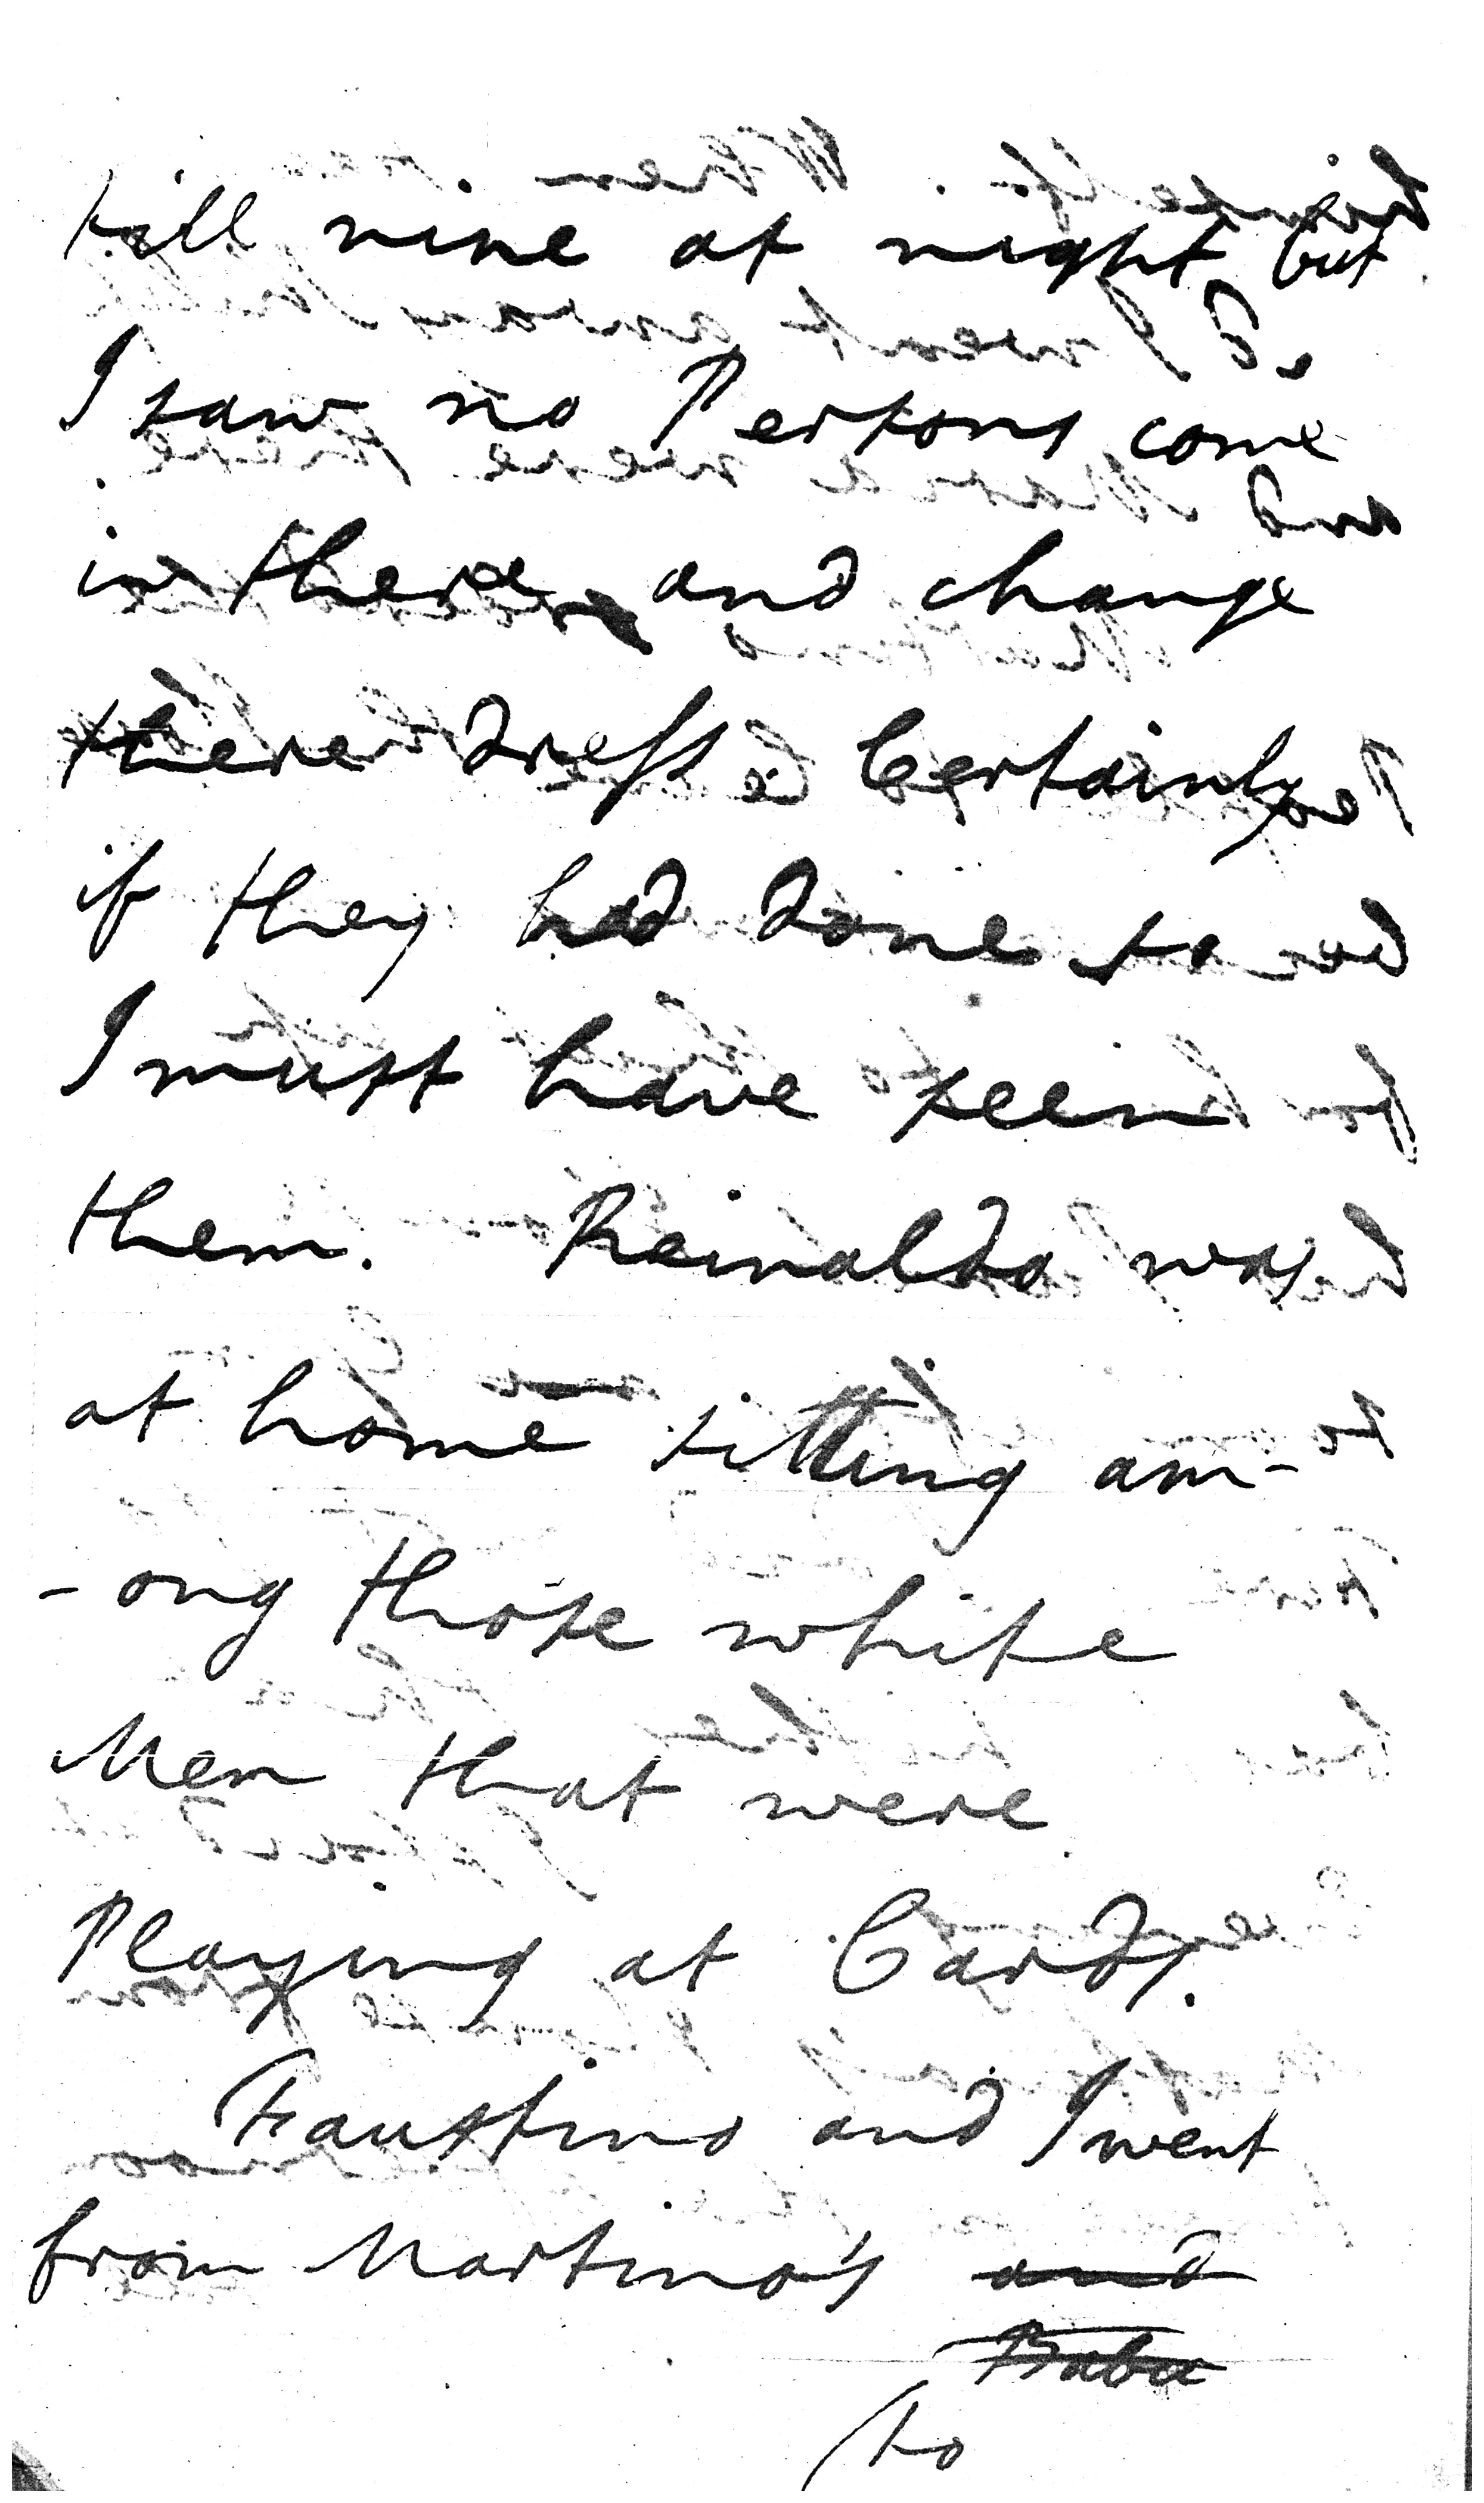 till nine at night but
I saw no Persons come
in there and change
there dress. Certainly
if they had done so
I must have seen
them. Reinaldo was
at home sitting am-
-ong those white
Men that were
Playing at Cards.
Faustino and I went
from Martino's and
to